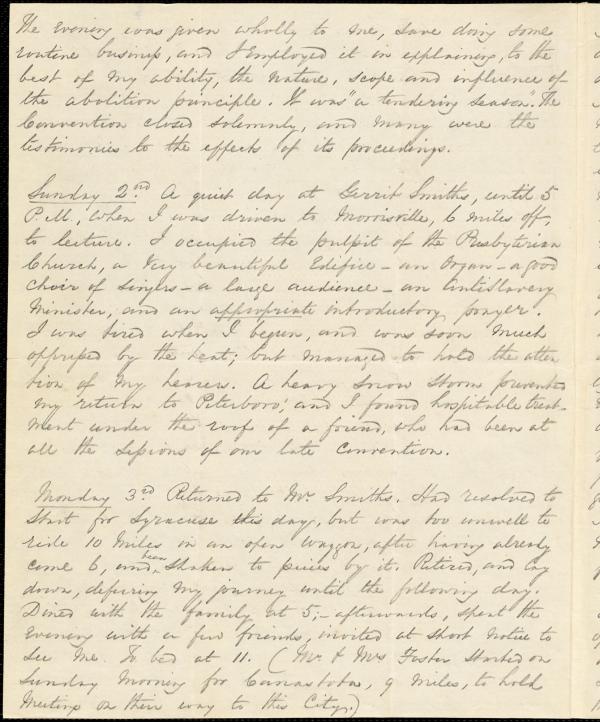 The Evening was given wholly to me, save doing some
routine business, and I Employed it in explaining, to the
best of my ability, the nature, scope and influence of
the abolition principle. It was "a tendering season." The
Convention closed solemnly, and many were the
testimonies to the effects of its proceedings.
Sunday 2nd A quiet day at Gerrit Smiths, until 5
P.M., when I was driven to Morrisville, 6 miles off,
to lecture. I occupied the pulpit of the Presbyterian
Church, a very beautiful Edifice – an Organ – a good
choir of singers – a large audience – an antislavery
Minister, and an appropriate introductory prayer.
I was tired when I began, and was soon much
oppressed by the heat; but managed to hold the atten
tion of my hearers. A heavy snow storm prevented
my return to Peterboro', and I found hospitable treat-
ment under the roof of a friend, who had been at
all the Sessions of our late Convention.
Monday 3rd Returned to Mr. Smiths. Had resolved to
start for Syracuse this day, but was too unwell to
ride 10 miles in an open waggon, after having already
come 6, and been shaken to pieces by it. Retired, and lay
down, defering my journey until the following day.
Dined with the family at 5; – afterwards, spent the
Evening with a few friends, invited at short notice to
see me. To bed at 11. (Mr & Mrs Foster started on
Sunday Morning for Canastota, 9 miles, to hold
Meetings on their way to this City.)